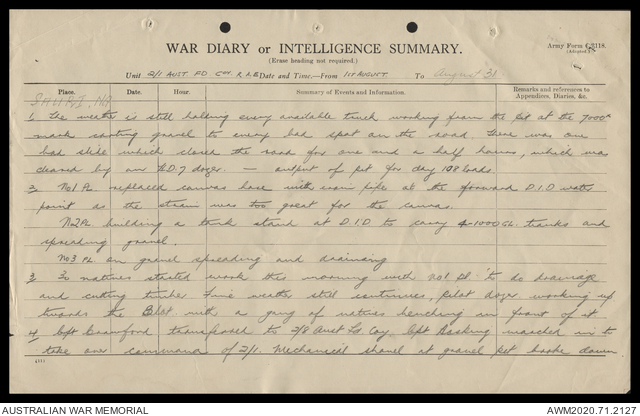 WAR DIARY or INTELLIGENCE SUMMARY.
(Erase heading not required.)
Army Form C.2118.
(Adapted)
Unit 2/1 AUST. FD. COY. R.A.E Date and Time.—From 1st AUGUST To August 31
Place. Date. Hour. Summary of Events and Information. Remarks and references to Appendices, Diaries, &c.
1. The weather is still holding every available truck working from the pit at the 7000x
mark carting gravel to every bad spot on the road. There was one
bad slide which closed the road for one and a half hours, which was
cleared by our H.D.7 dozer. — output of pit for day 108 loads.
2 No1 Pl replaced canvas hose with iron pipe at the forward D.I.D water
point as the strain was too great for the canvas.
No2 Pl. building a tank stand at D.I.D to carry 4-1000 GL. tanks and
spreading gravel.
No3 Pl. on gravel spreading and draining
3 30 natives started work this morning with No1 Pl. to do drainage
and cutting timber Fine weather still continues, Pilot dozer working up
towards the Blot with a gang of natives benching in front of it
4 Capt Crawford transferred to 2/8 Aust Fd Coy Capt Hosking marched in to
take over command of 2/1. Mechanical shovel at gravel pit broke down
AUSTRALIAN WAR MEMORIAL
AWM2020.71.2127